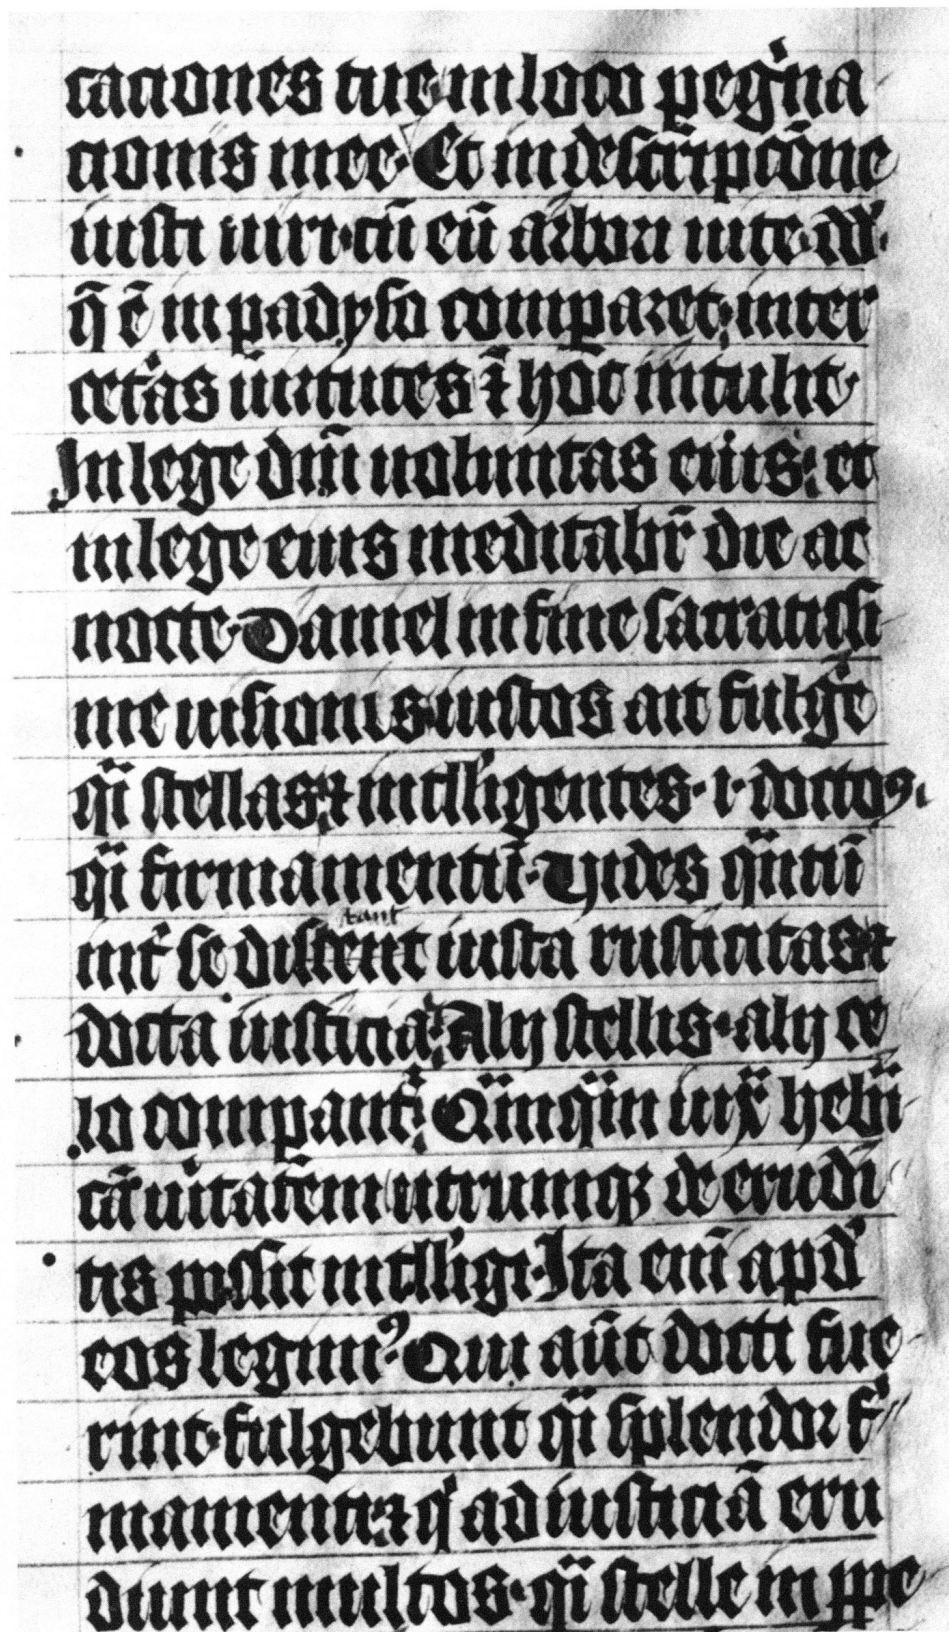 caciones tue in loco peg'na
cionis mee. Et in descriptiōne
iusti uiri. cū eū arbori uite. Dō'
q̄ ē in padyso comparet: inter
cetas uirtutes ⁊ hoc intulit.
In lege dn̄i uoluntas eius: et
in lege eius meditabit̄ die ac
nocte. Daniel in fine sacratissi
me uisionis iustos ait fulge
qi stellas: ⁊ intell'igentes .i. doctos.
qi firmamentū. Vides qntū
int' se distent iusta rusticitas: ⁊
tant
docta iusticia: Alij stellis. alij ce
lo compant': Qinqin iux hebi
cā uitatem utrumqꝫ de erudi
tis possit intell'igi. Ita eni apd'
eos legim⁹. Qui aut docti fue
rint. fulgebunt qi splendor f'
mamenti: ⁊ q' ad iusticiā eru
diunt multos. qi stelle in ppe